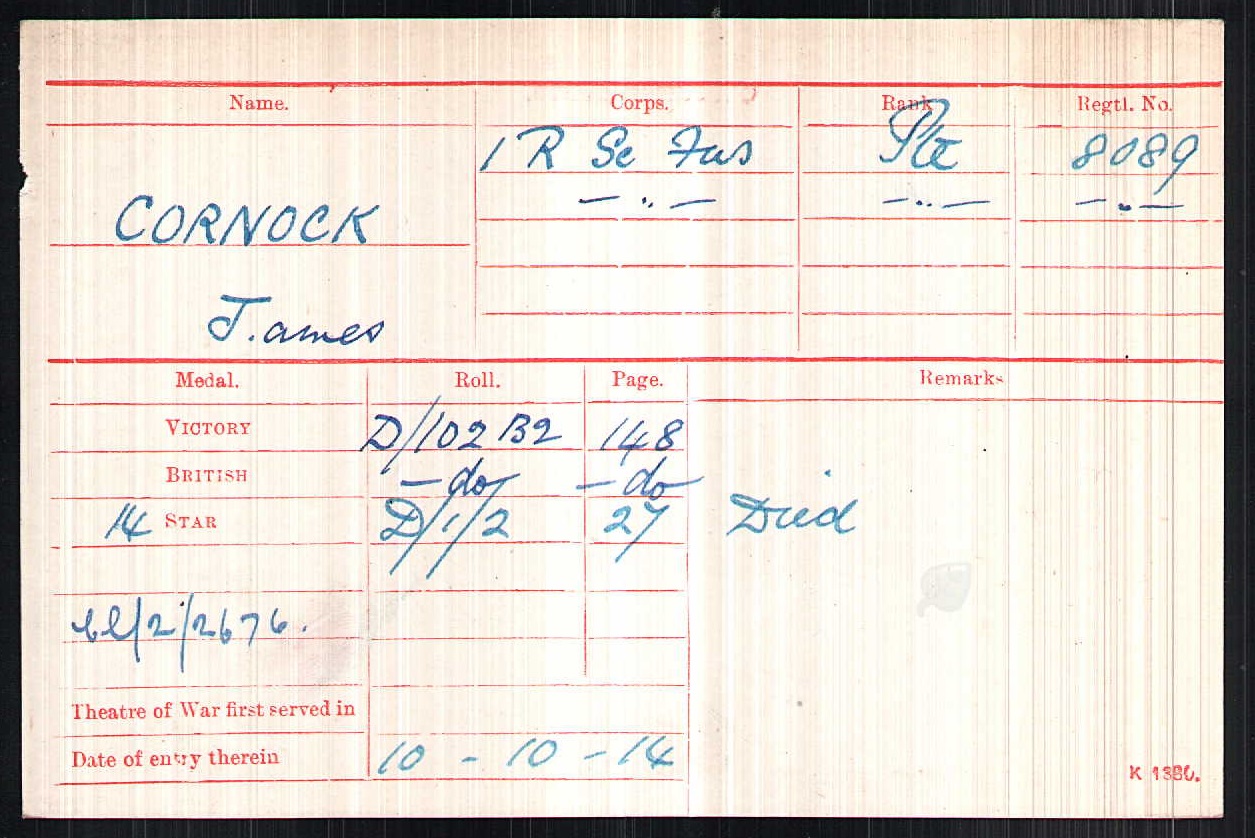 Name. Corps. Rank Regtl. No.
1 R Sc Fus Pte 8089
— „ — — „ — — „ —
CORNOCK
J.ames
Medal. Roll. Page. Remarks
VICTORY D/102 B2 148
BRITISH — do — do
14 STAR D/1/2 27 Died
/2/2676.
Theatre of War first served in
Date of entry therein 10 - 10 - 14
K 1380.